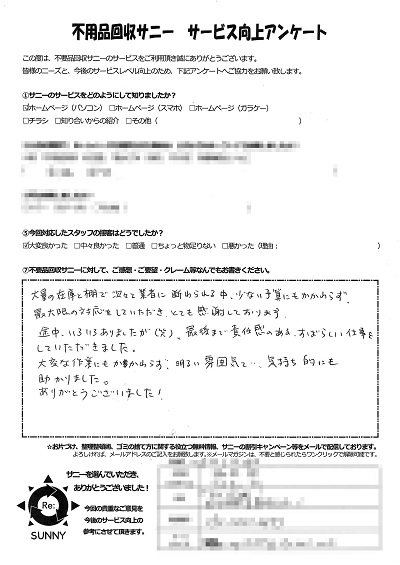 不用品回収サニー　サービス向上アンケート
この度は、不用品回収サニーのサービスをご利用頂き誠にありがとうございます。
皆様のニーズと、今後のサービスレベル向上のため、下記アンケートへご協力をお願い致します。
①サニーのサービスをどのようにして知りましたか？
☑ホームページ（パソコン）　□ホームページ（スマホ）　□ホームページ（ガラケー）
□チラシ　□知り合いからの紹介　□その他（　　　）
⑤今回対応したスタッフの接客はどうでしたか？
☑大変良かった　□中々良かった　□普通　□ちょっと物足りない　□悪かった（理由：　　　）
⑦不要品回収サニーに対して、ご感想・ご要望・クレーム等なんでもお書きください。
大量の在庫と棚で 次々と業者に 断わられる中、少ない予算にもかかわらず、
最大限の対応をしていただき、とても感謝しております。
途中、いろいろありましたが（笑）、最後まで責任感のある、すばらしい仕事を
していただきました。
大変な作業にもかかわらず、明るい雰囲気で、気持ち的にも
助かりました。
ありがとうございました！
☆お片づけ、整理整頓術、ゴミの捨て方に関する役立つ無料情報、サニーの割引キャンペーン等をメールで配信しております。
よろしければ、メールアドレスのご記入をお願致します。※メールマガジンは、不要と感じられたらワンクリックで解除可能です。
サニーを選んでいただき、
ありがとうございました！
Re:
SUNNY
今回の貴重なご意見を
今後のサービス向上の
参考にさせて頂きます。